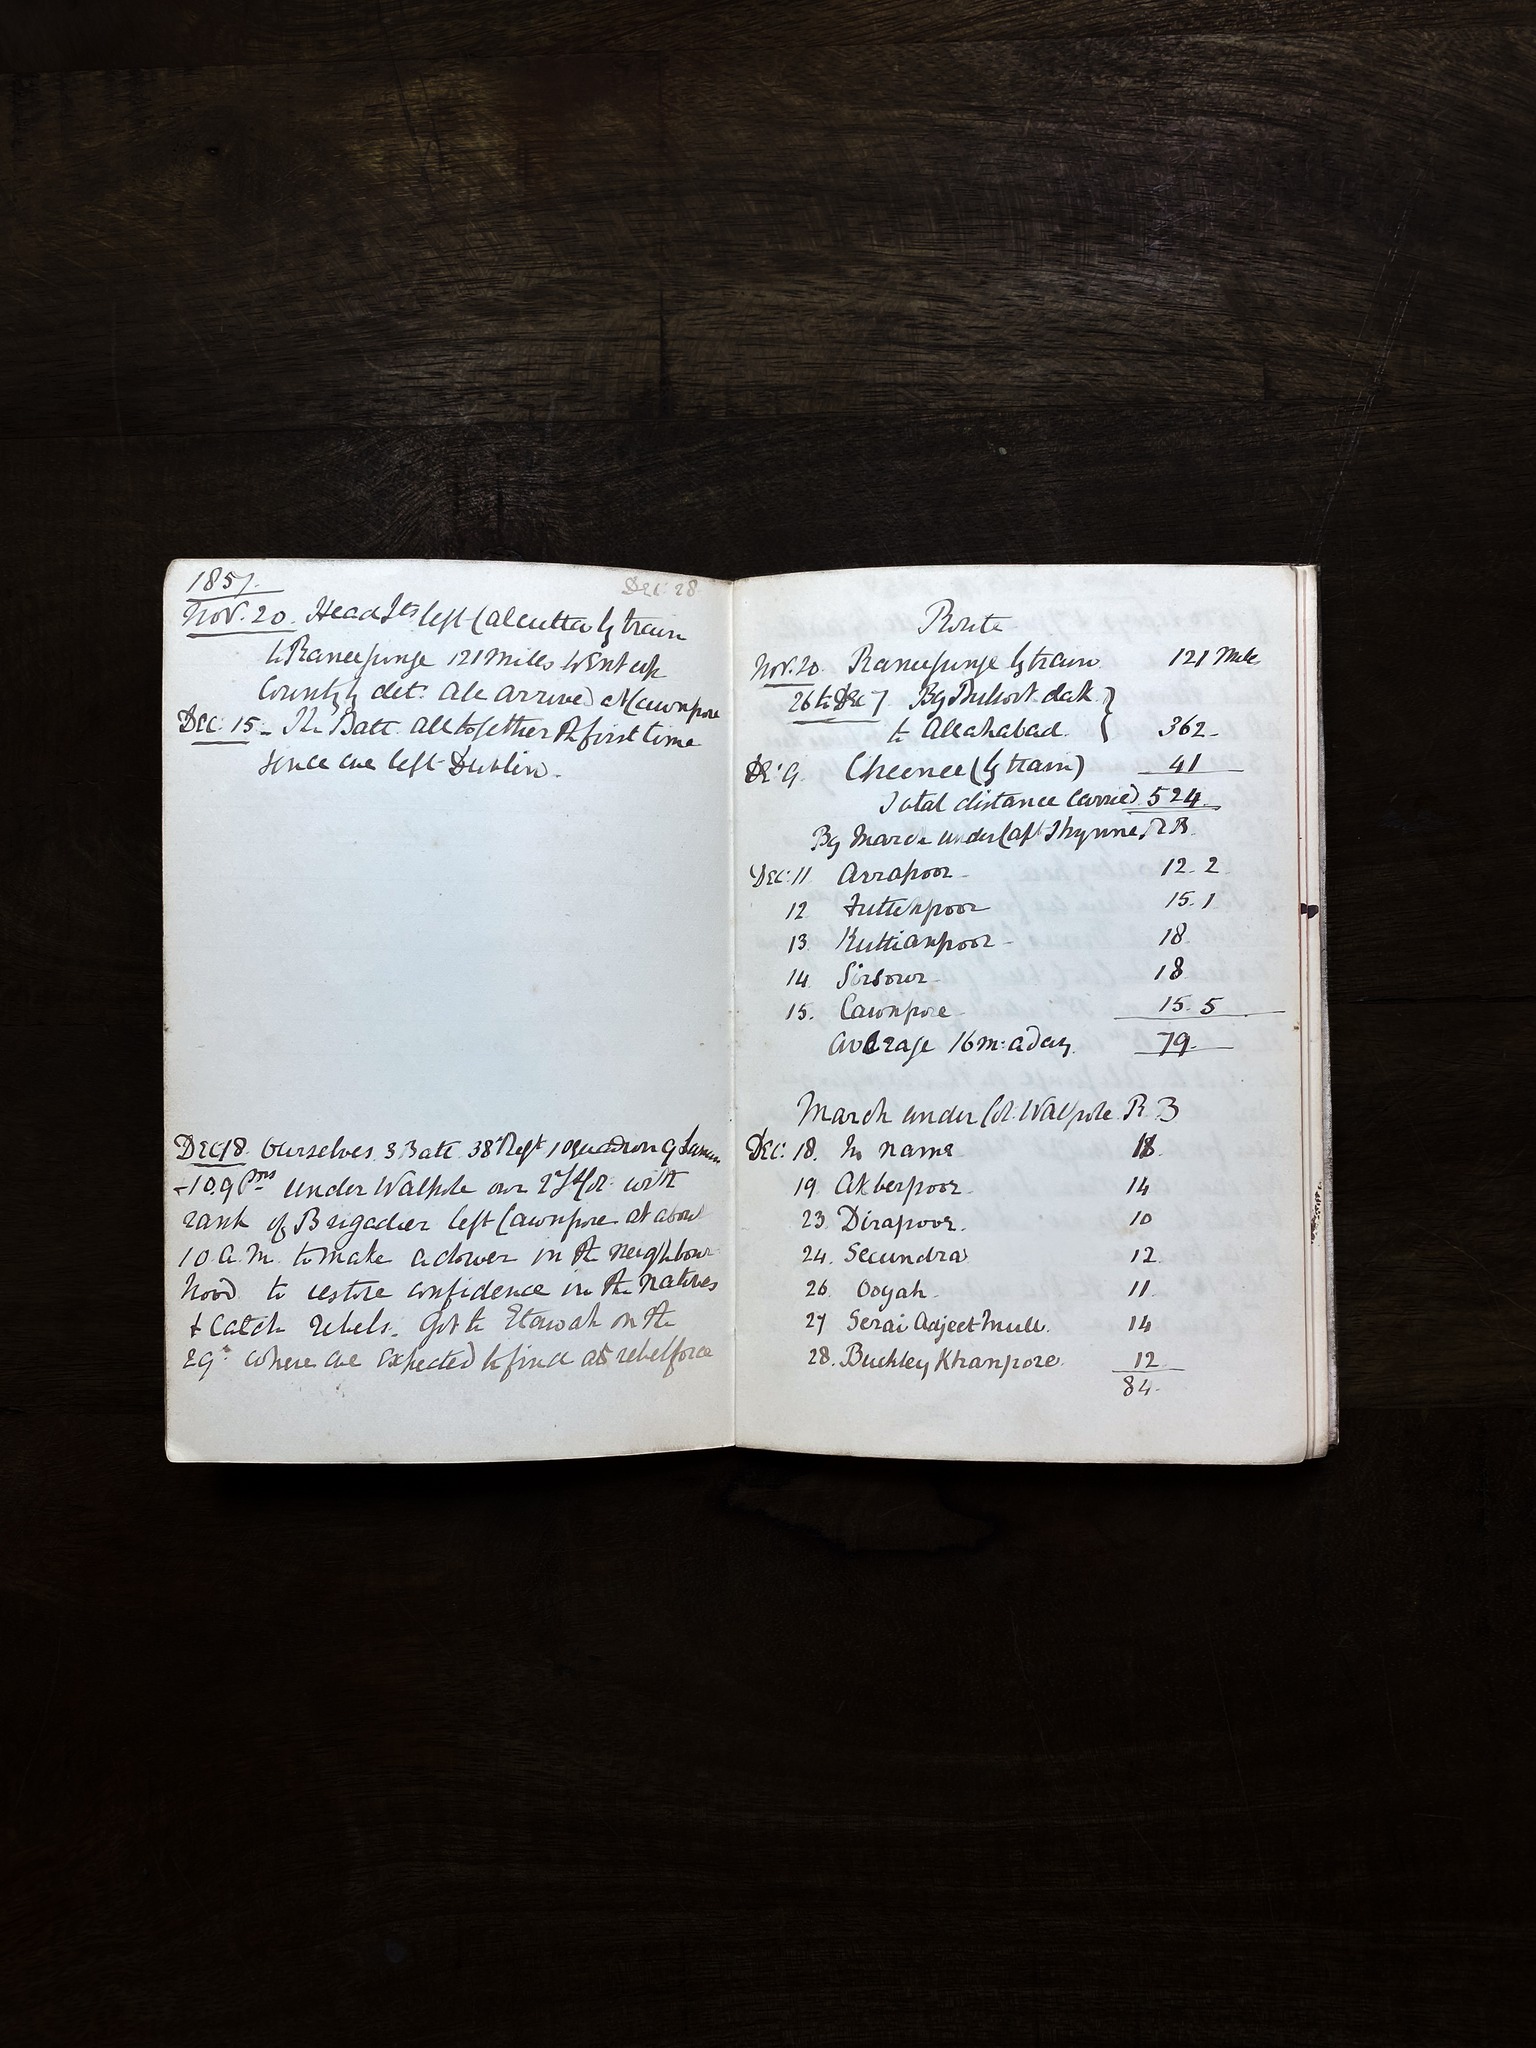 1857.
Dec: 28.
Nov. 20. Head Qrs left Calcutta by train
to Raneegunge 121 miles went up
Country by dets. All arrived at Cawnpore
Dec: 15 - The Batt. all together the first time
since we left Dublin.
Dec 18. Ourselves 3 Batt. 38th Regt 1 Squadron 9 Lancers
under Walpole our 2nd Lt Col: with
rank of Brigadier left Cawnpore at about
10 a.m. to make a dower in the neighbour-
hood to restore confidence in the natives
& catch rebels. Got to Etawah on the
29th where we expected to find a rebel force
Route
Nov. 20. Raneegunge by train 121 Mile
26 to Dec 7 By Bullock dak
to Allahabad. 362.
Dec: 9. Cheenee (by train) 41
Total distance carried 524.
By March under Capt Thynne, R B.
Dec: 11 Arrapoor - 12. 2
12 Futtehpoor 15. 1
13. Kuttianpoor - 18
14. Sirsowr - 18
15. Cawnpore - 15. 5
Average 16 m: a day. 79.
March under Col. Walpole R B
Dec: 18. No name
19. Akberpoor. 14
23. Dirapoor. 10
24. Secundra 12.
26. Ooyah. 11.
27 Serai Adjeet Mull. 14
28. Buckley Khanpore. 12
84.